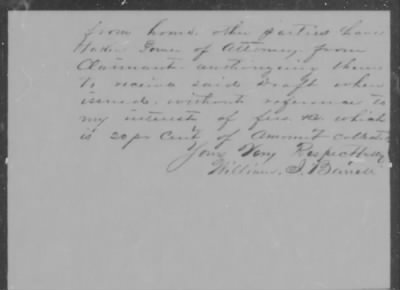 from home. other parties have
taken Power of Attorney from
Claimants authorizing them
to receive said Draft when
issued, without reference to
my interest of fees &c which
is 20 pr Cent of Amount collected
Yours Very Respectfully
William J.